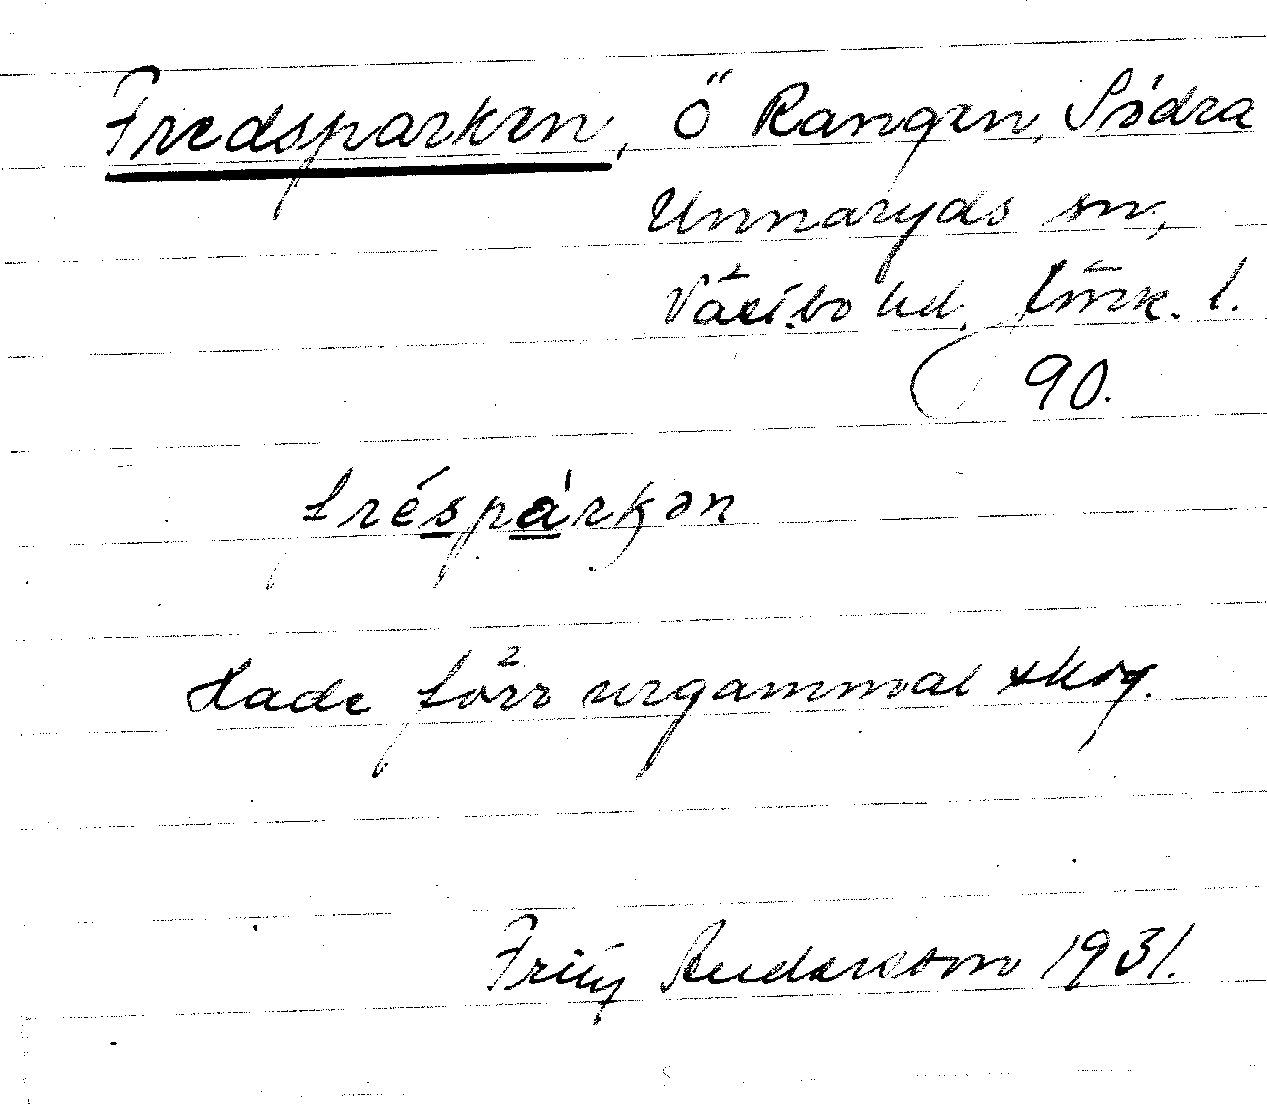 Fredsparken, ö Rangen, Södra
Unnaryds sn,
Västbo hd. Jönk. l.
90.
fréspàrkən
Hade förr urgammal skog.
Fritz Andersson 1931.